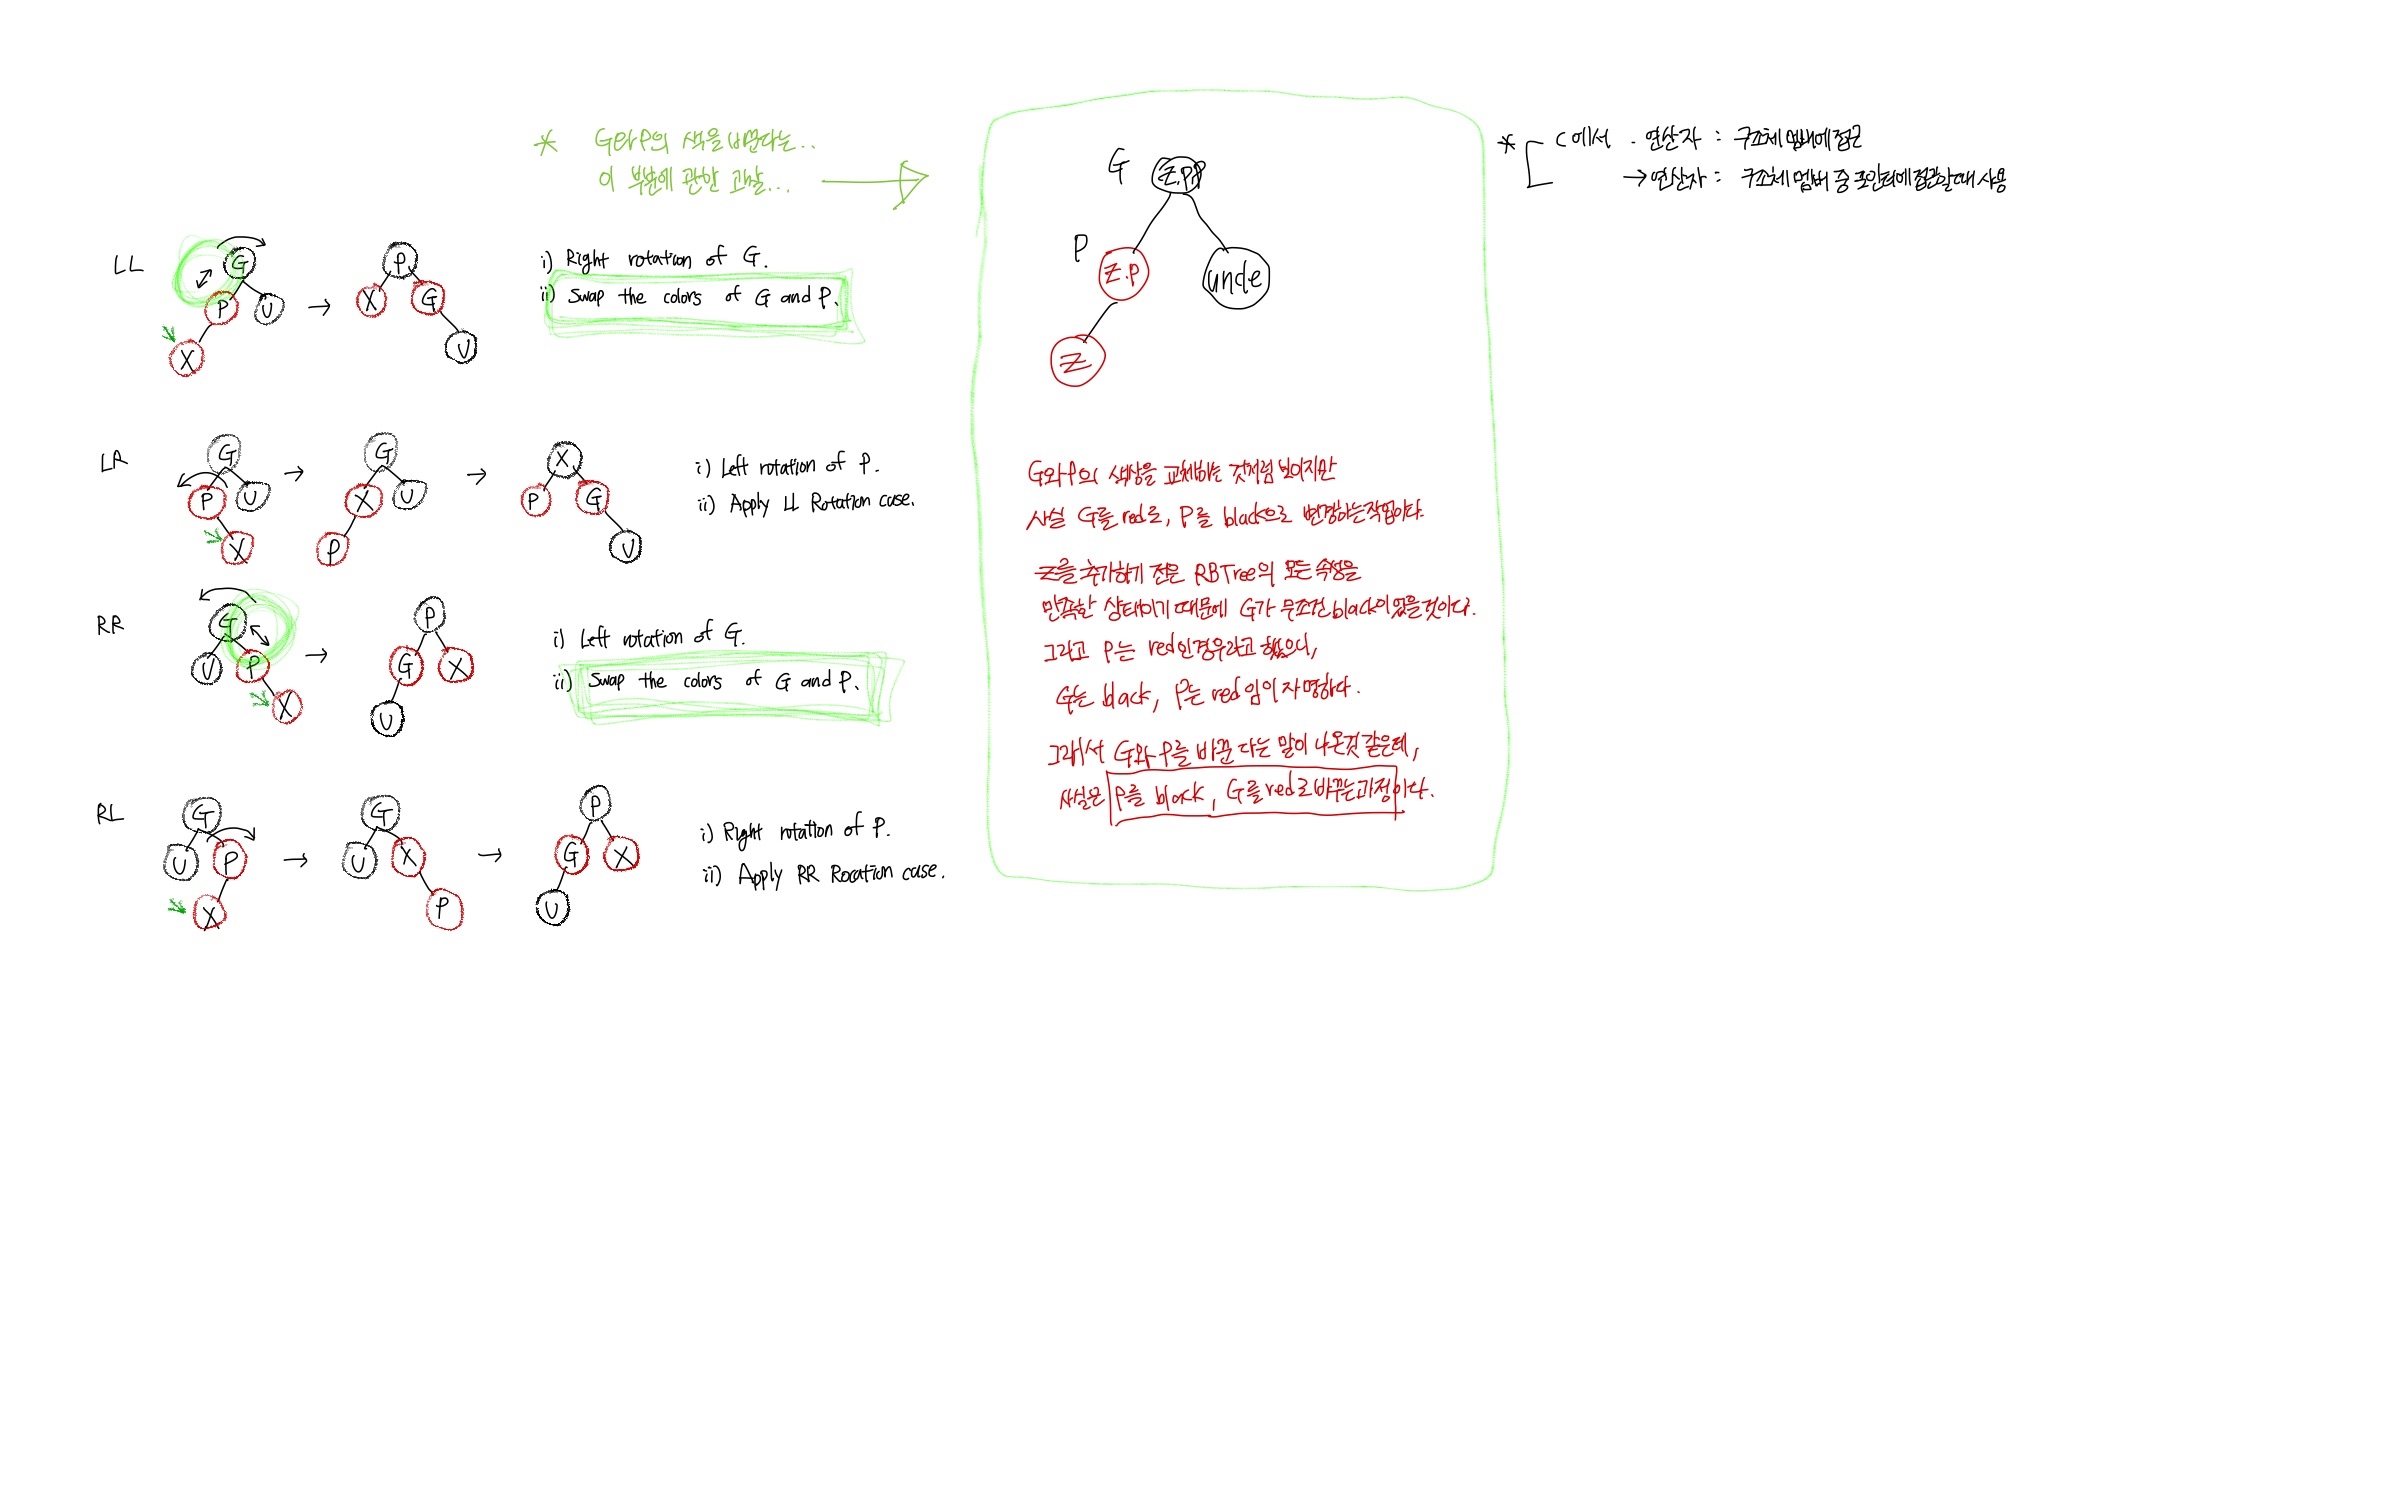 * G와P의 색을 바꾼다는..
이 부분에 관한 고찰...
LL
G
P
U
X
→
P
X
G
U
i) Right rotation of G.
ii) Swap the colors of G and P.
LR
G
P
U
X
→
G
X
U
P
→
X
P
G
U
i) Left rotation of P.
ii) Apply LL Rotation case.
RR
G
U
P
X
→
P
G
X
U
i) Left rotation of G.
ii) Swap the colors of G and P.
RL
G
U
P
X
→
G
U
X
P
→
P
G
X
U
i) Right rotation of P.
ii) Apply RR Rocation case.
G
z.p.p
P
z.p
uncle
z
G와P의 색상을 교체하는 것처럼 보이지만
사실 G를 red로, P를 black으로 변경하는작업이다.
z를 추가하기 전은 RBTree의 모든 속성을
만족한 상태이기 때문에 G가 무조건 black이었을것이다.
그리고 P는 red인경우라고 했으니,
G는 black, P는 red임이 자명하다.
그래서 G와 P를 바꾼다는 말이 나온것 같은데,
사실은 P를 black, G를 red로 바꾸는과정이다.
* C에서 . 연산자 : 구조체 멤버에 접근
→ 연산자 : 구조체 멤버 중 포인터에 접근할때 사용